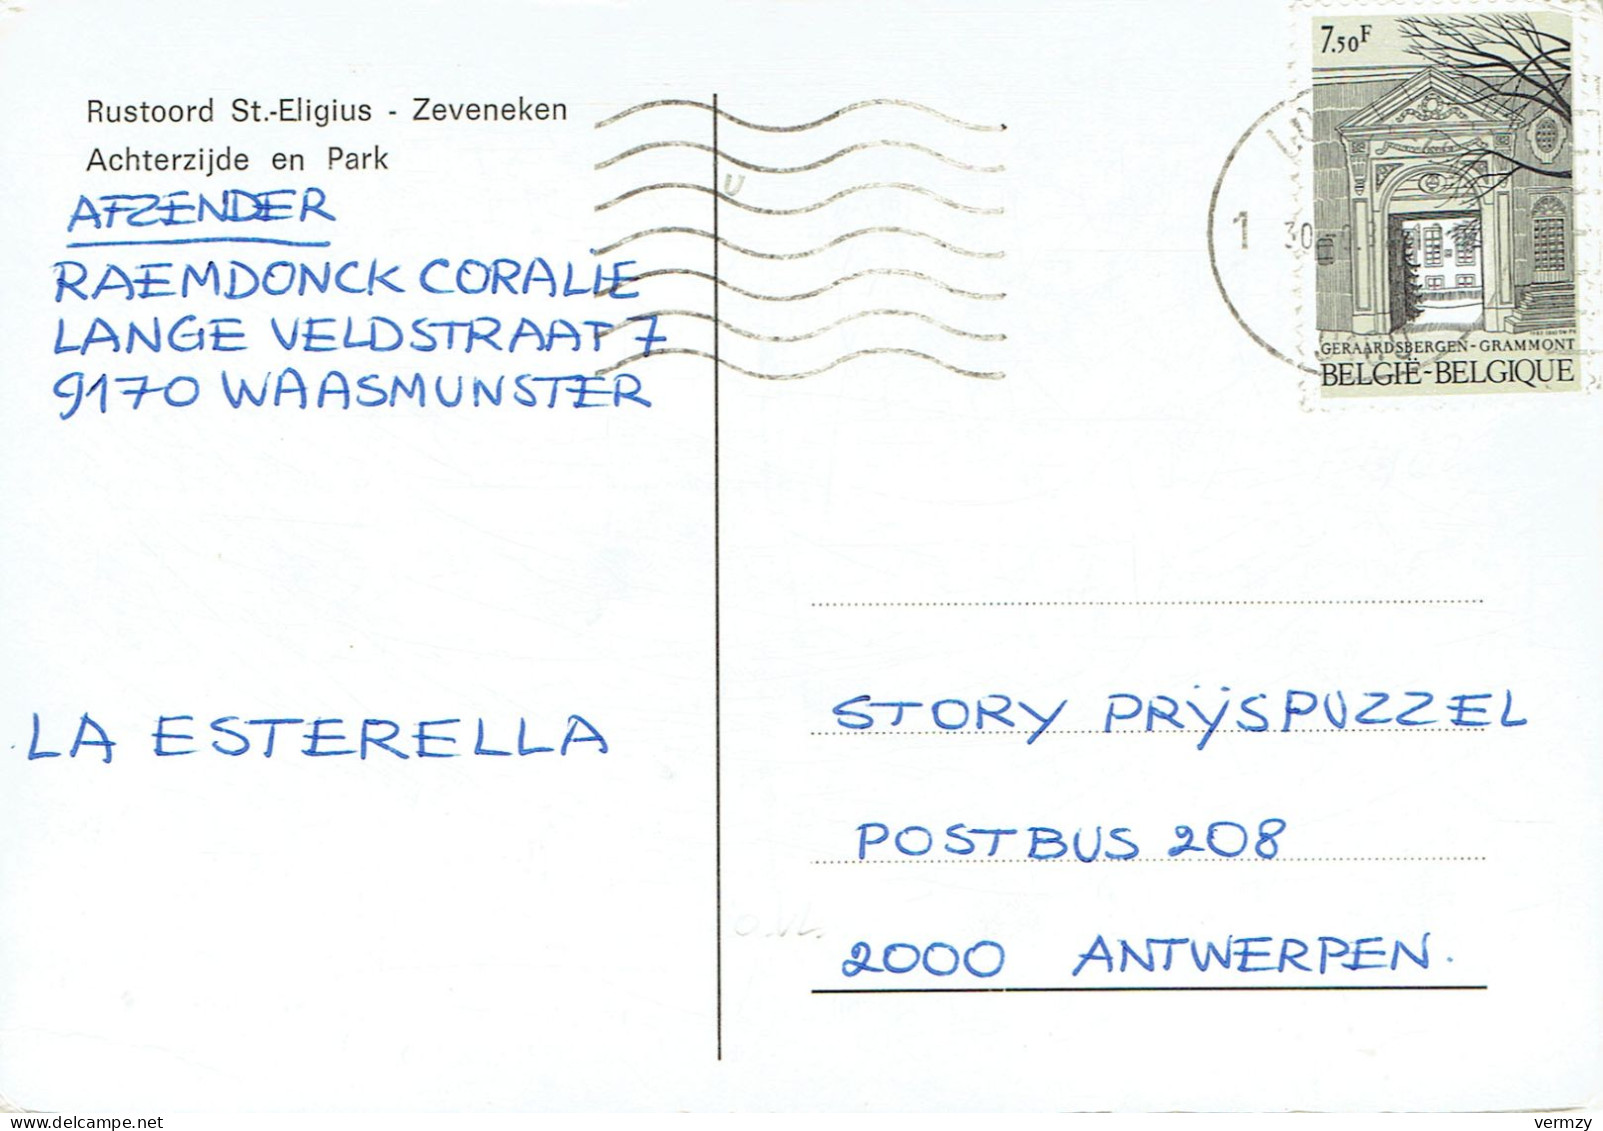 Rustoord St.-Eligius - Zeveneken
Achterzijde en Park
AFZENDER
RAEMDONCK CORALIE
LANGE VELDSTRAAT 7
9170 WAASMUNSTER
LA ESTERELLA
7.50F
1 30
GERAARDSBERGEN-GRAMMONT
BELGIË-BELGIQUE
STORY PRIJSPUZZEL
POSTBUS 208
2000 ANTWERPEN.
www.delcampe.net
vermzy